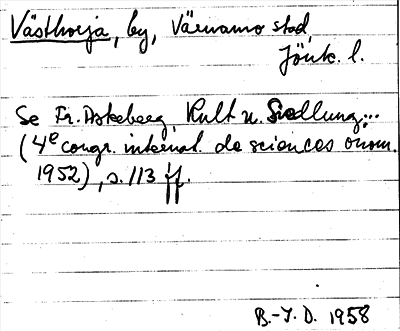 Västhorja, by, Värnamo stad,
Jönk. l.
Se Fr. Askeberg, Kult u. Siedlung...
(4e congr. internat. de sciences onom.
1952), s. 113 ff.
B.-I. D. 1958